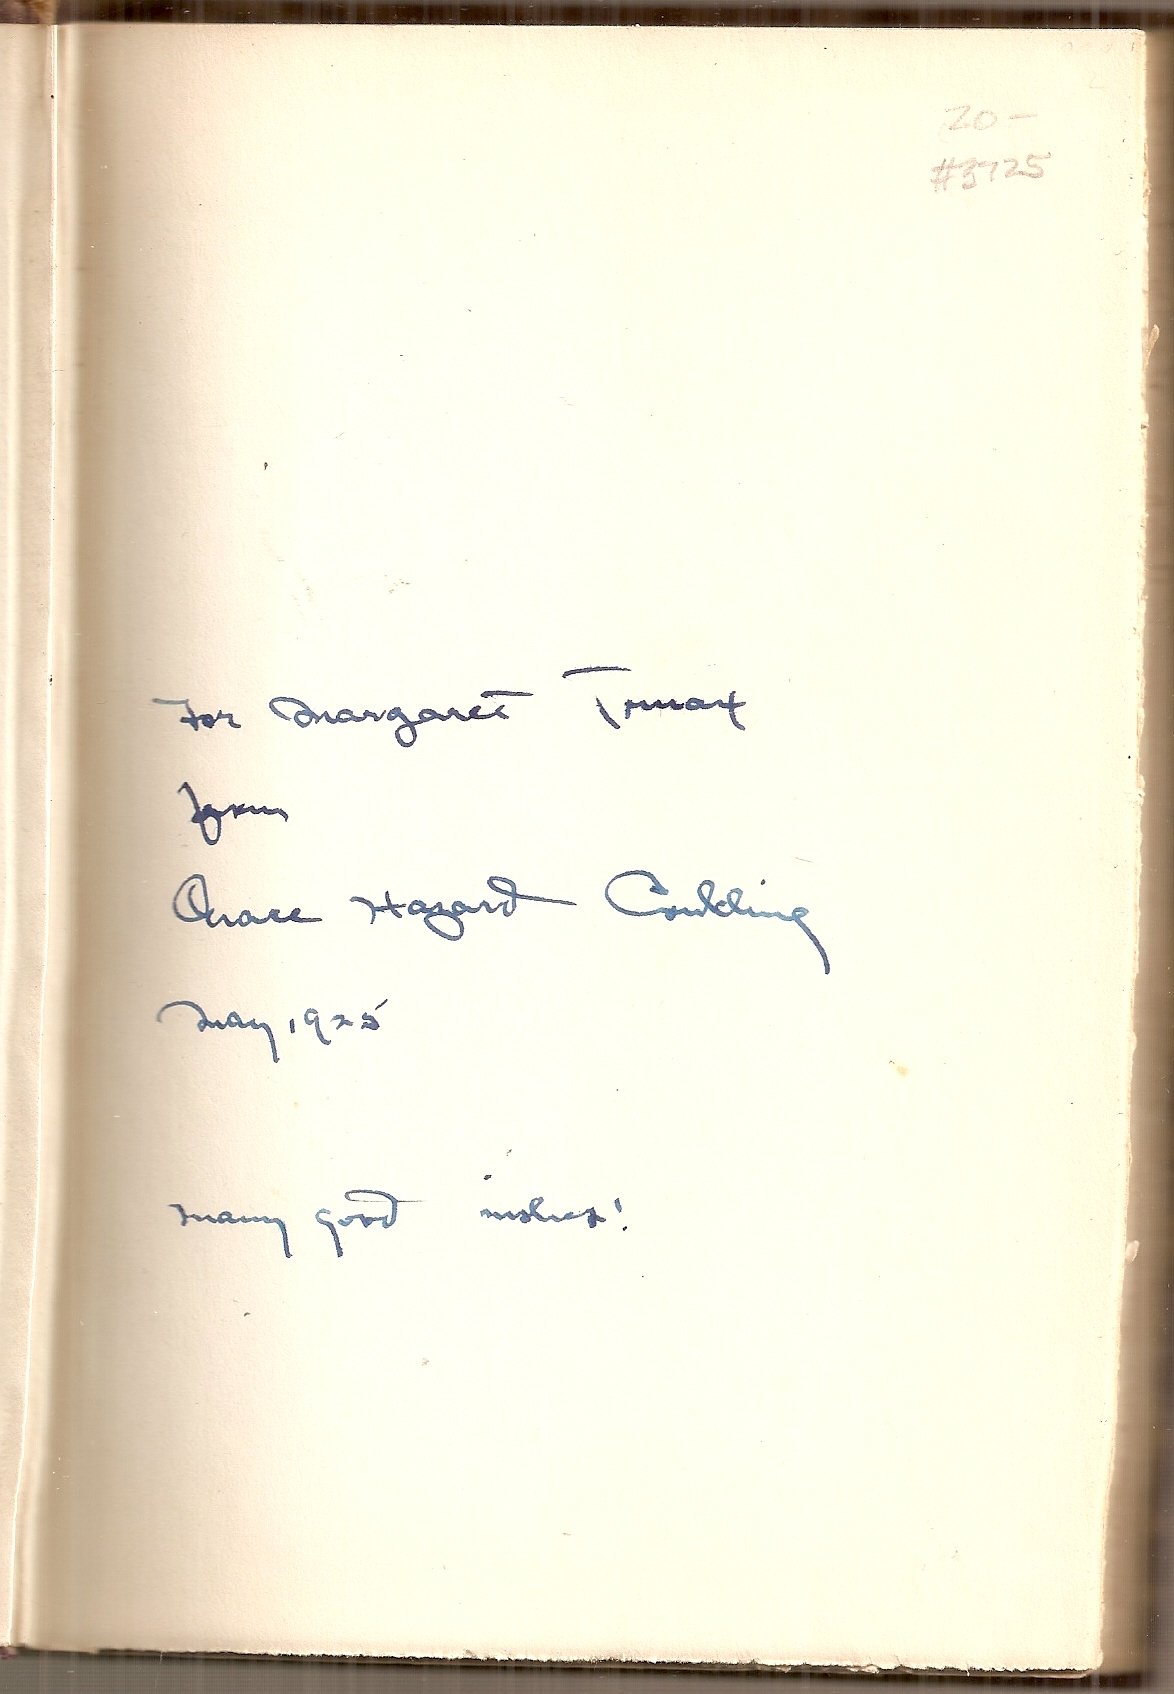 20 —
#3725
For Margaret Truax
from
Grace Hazard Conkling
May 1925
many good wishes!